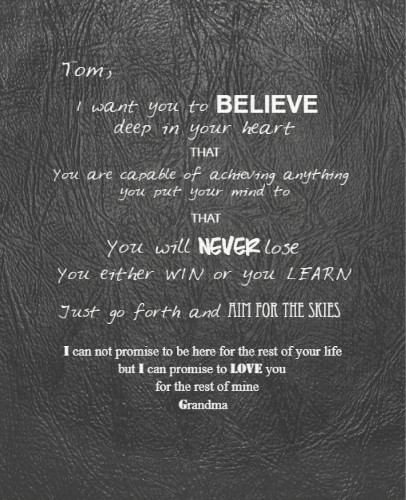 Tom,
I want you to BELIEVE
deep in your heart
THAT
You are capable of achieving anything
you put your mind to
THAT
You will NEVER lose
You either WIN or you LEARN
Just go forth and AIM FOR THE SKIES
I can not promise to be here for the rest of your life
but I can promise to LOVE you
for the rest of mine
Grandma